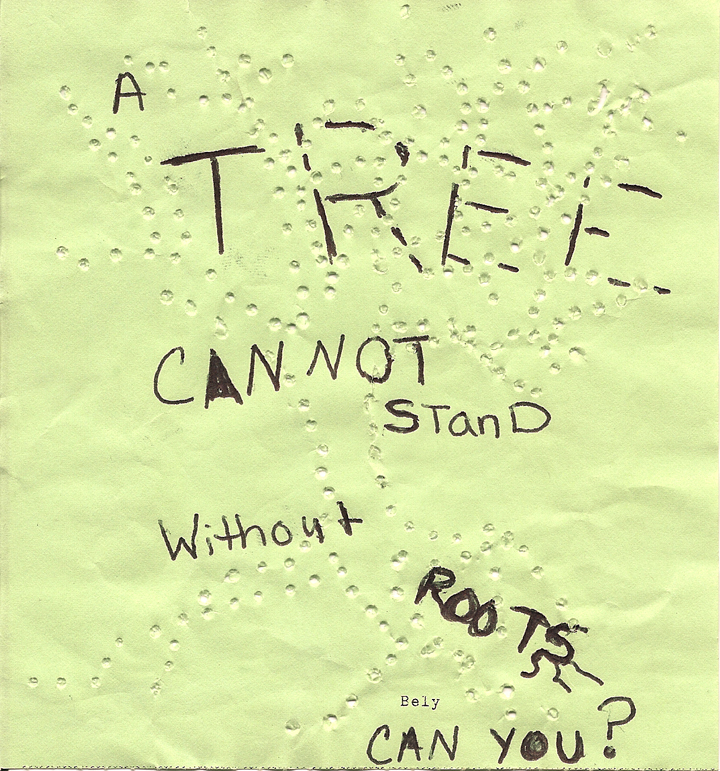 A
TREE
CANNOT
STanD
Without
ROOTS
Bely
CAN YOU?